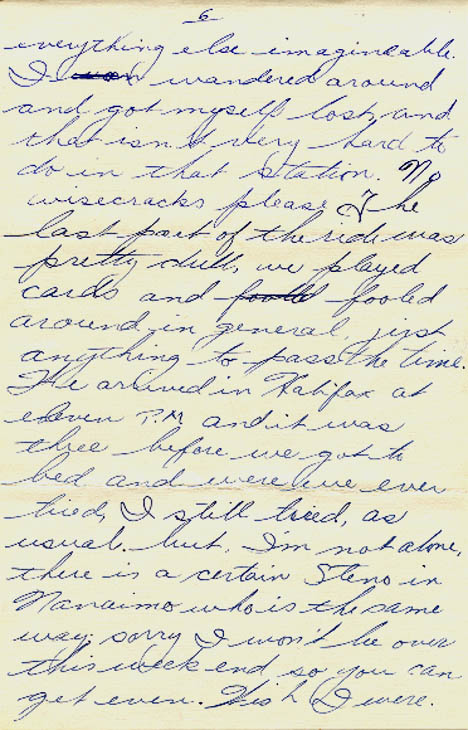 6
everything else imagineable.
I wandered around
and got myself lost, and
that isn't very hard to
do in that station. No
wisecracks please. The
last part of the ride was
pretty dull, we played
cards and fooled fooled
around in general, just
anything to pass the time.
We arrived in Halifax at
eleven P.M and it was
three before we got to
bed and were we ever
tired, I still tired, as
usual. but, I'm not alone,
there is a certain Steno in
Nanaimo who is the same
way, sorry I won't be over
this week end so you can
get even. Wish I were.